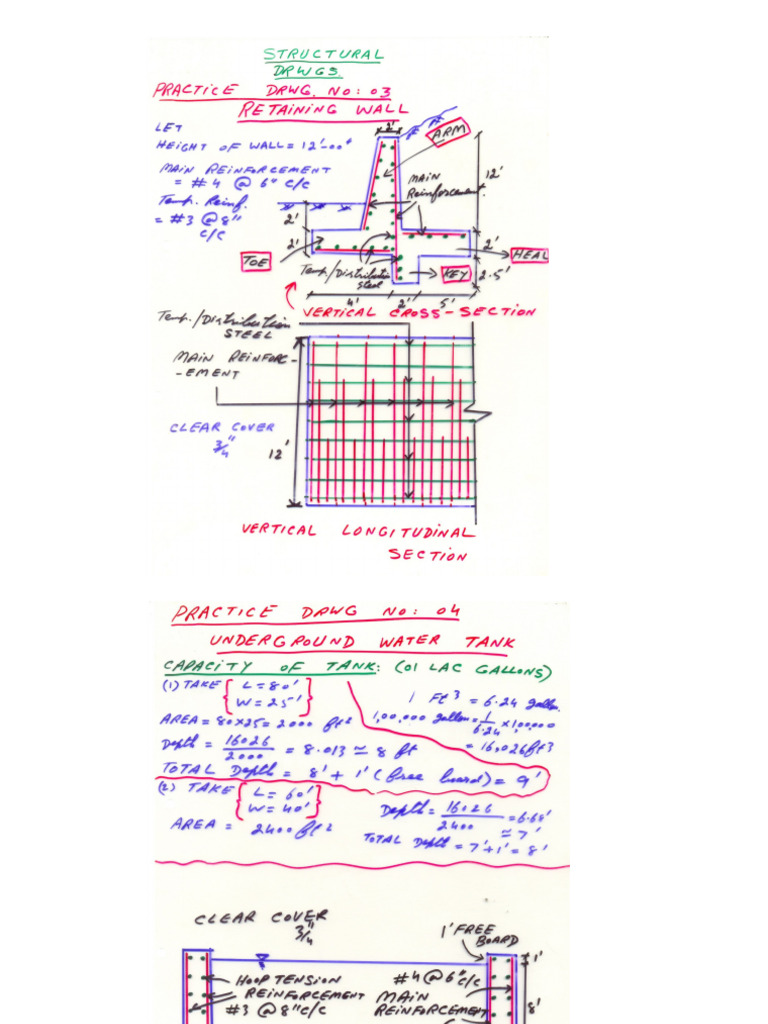 STRUCTURAL
DRWGS.
PRACTICE DRWG. NO: 03
RETAINING WALL
LET
HEIGHT OF WALL = 12'-00"
MAIN REINFORCEMENT
= #4 @ 6" c/c
Temp. Reinf.
= #3 @ 8"
c/c
2'
ARM
12'
MAIN
Reinforcement.
2'
2'
2'
TOE
HEAL
Temp./Distribution
steel
KEY
2.5'
4'
2'
5'
VERTICAL CROSS-SECTION
Temp./Distribution
STEEL
MAIN REINFORC-
-EMENT
CLEAR COVER
3/4"
12'
VERTICAL LONGITUDINAL
SECTION
PRACTICE DRWG NO: 04
UNDERGROUND WATER TANK
CAPACITY OF TANK: (01 LAC GALLONS)
(1) TAKE { L = 80' }
W = 25'
1 Ft³ = 6.24 gallon.
AREA = 80x25 = 2000 ft²
1,00,000 gallon = 1/6.24 x 1,00,000
= 16,026 ft3
Depth = 16026/2000 = 8.013 ≃ 8 ft
TOTAL Depth = 8' + 1' (free board) = 9'
(2) TAKE { L = 60' }
W = 40'
AREA = 2400 ft²
Depth = 16026/2400 = 6.68'
≃ 7'
TOTAL Depth = 7'+1' = 8'
CLEAR COVER
3/4"
1' FREE
BOARD
1'
HOOP TENSION
REINFORCEMENT
#3 @ 8" c/c
#4 @ 6" c/c
MAIN
REINFORCEMENT
8'